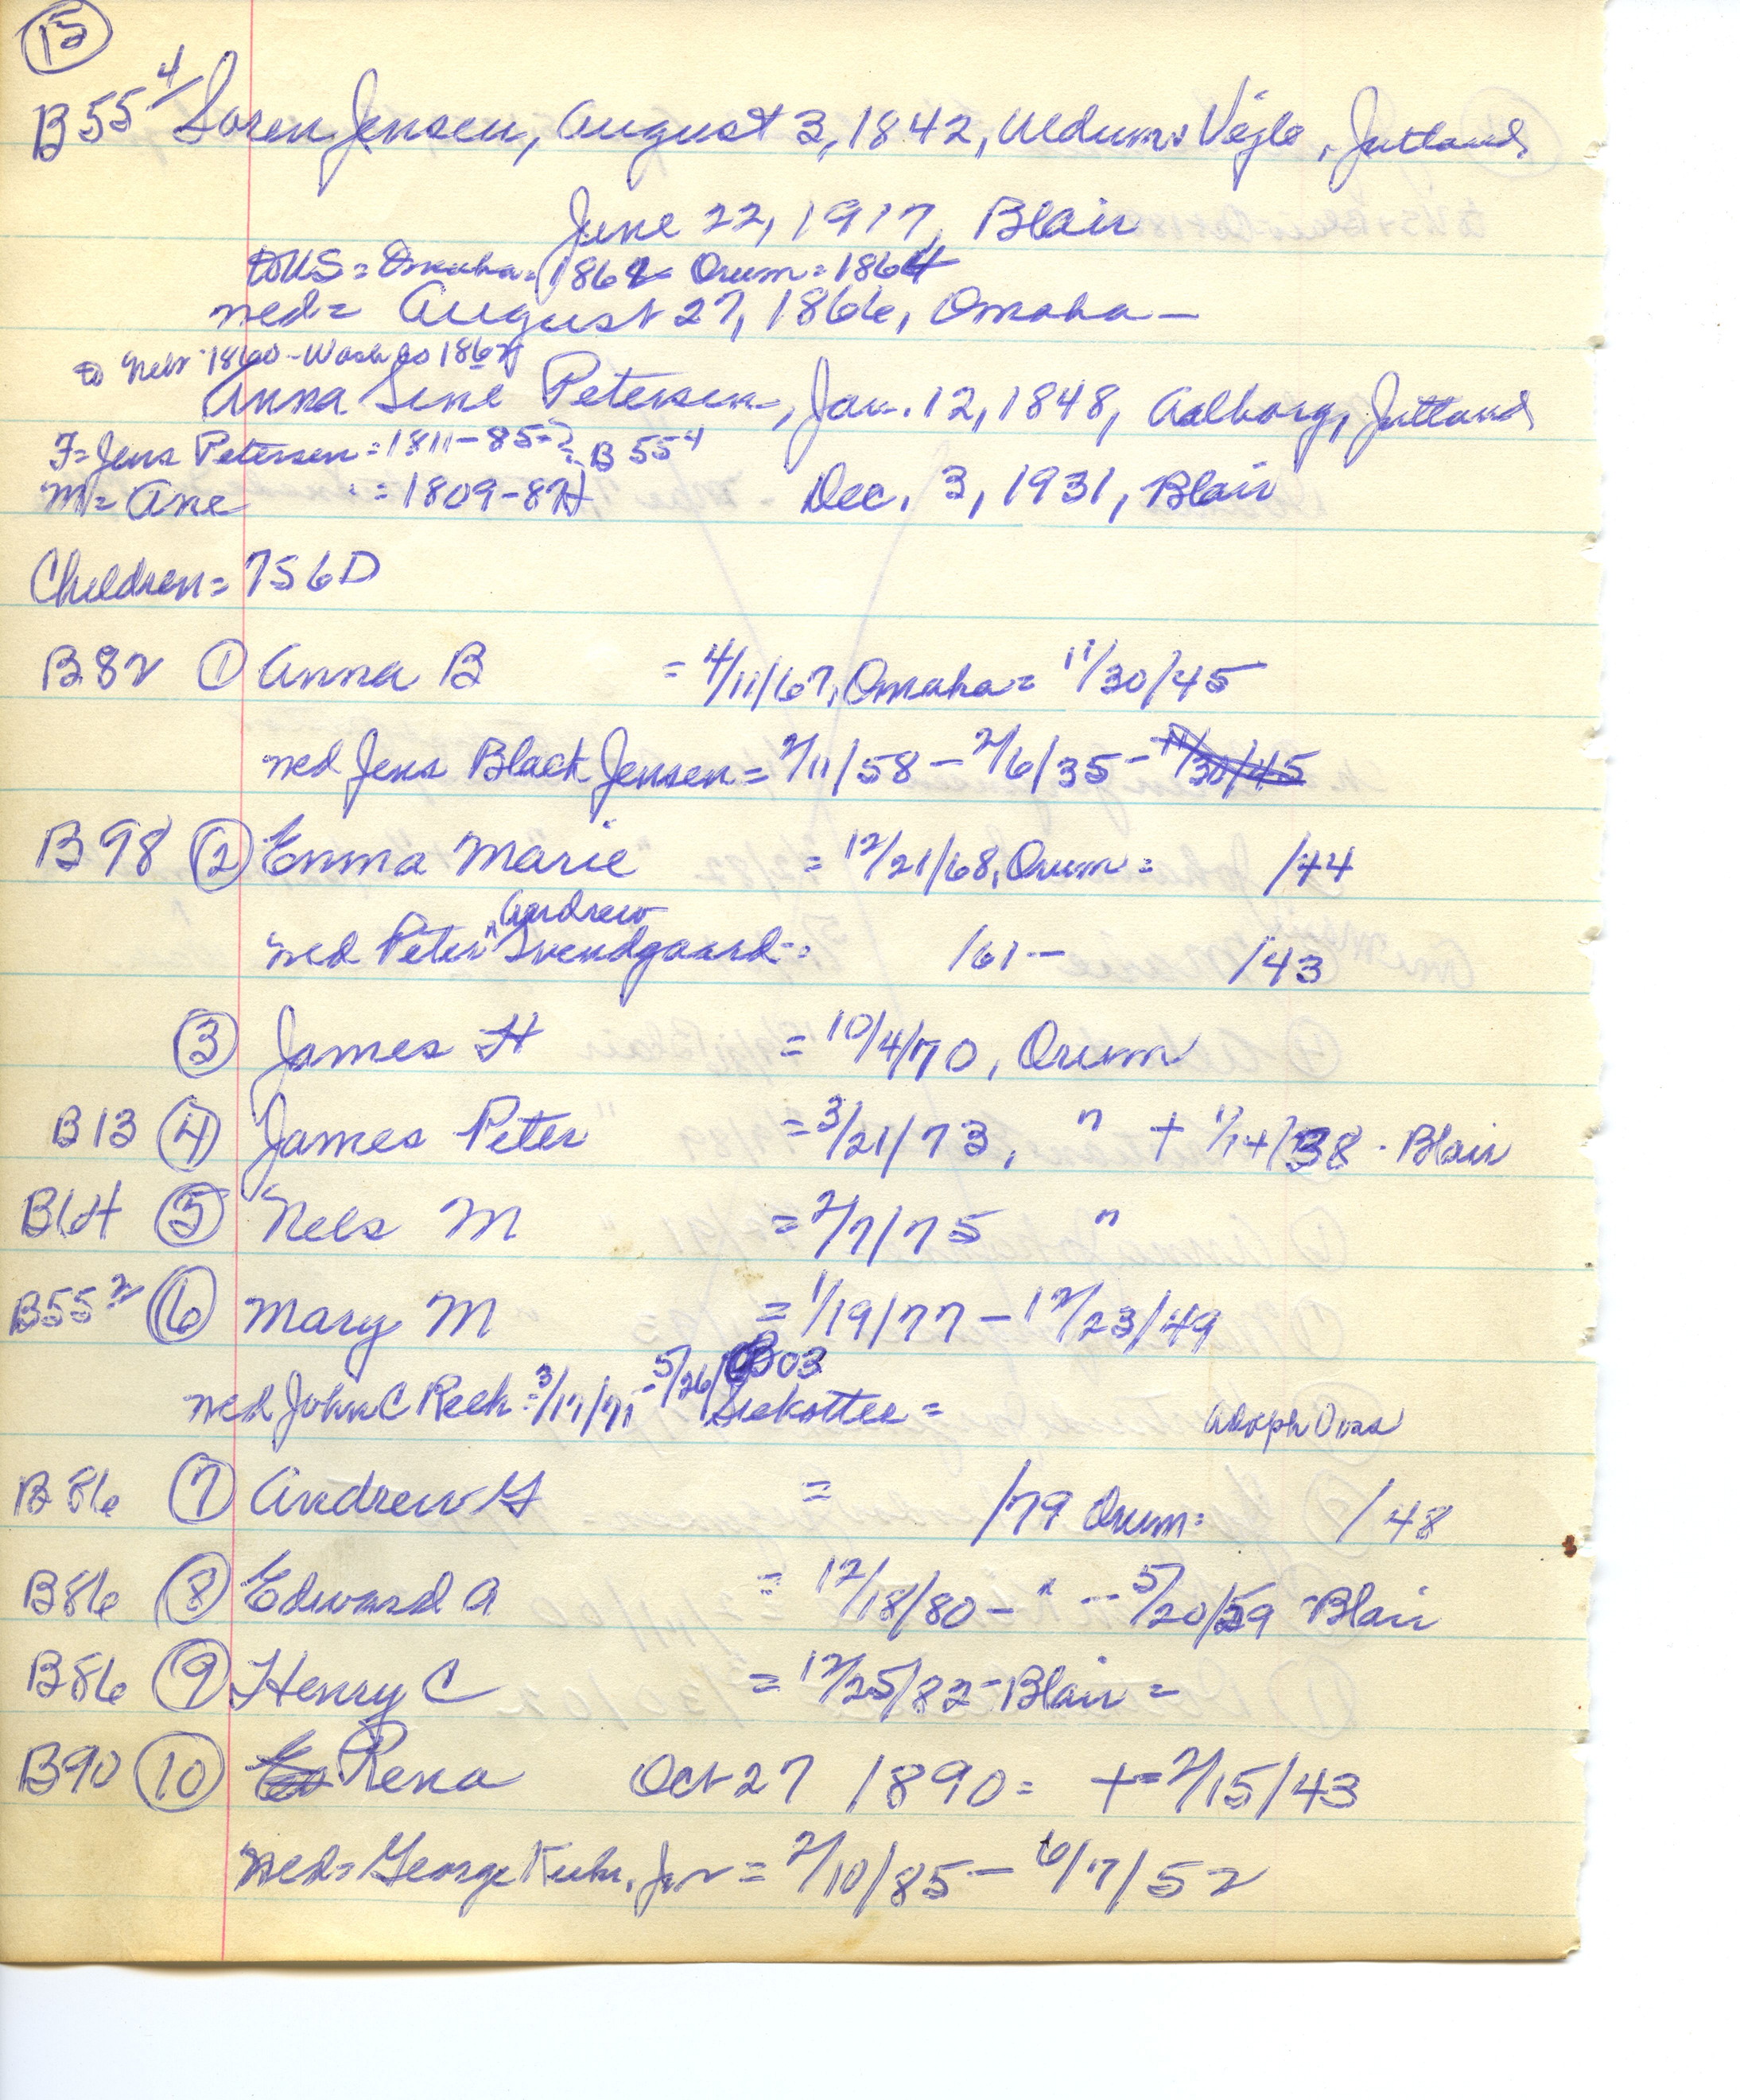 15
B55 4/ Soren Jensen, August 3, 1842, Uldum, Vejle, Jutland
June 22, 1917, Blair
to US = Omaha = 1862 Orum = 1864
med = August 27, 1866, Omaha –
to Nebr 1860 - Wash Co 1867
Anna Sine Petersen, Jan. 12, 1848, Aalborg, Jutland
F = Jens Petersen = 1811 - 85 = ? = B 55 4
M = Ane " = 1809 - 84
Dec. 3, 1931, Blair
Children = 7S 6D
B82 ① Anna B = 4/11/67, Omaha = 11/30/45
med Jens Black Jensen = 2/11/58 – 2/6/35 – 11/30/45
B98 ② Emma Marie = 12/21/68, Orum = /44
Andrew
med Peter ^ Svendgaard = /61 – /43
③ James H = 10/4/70, Orum
B13 ④ James Peter = 3/21/73, " + 1/14/38 - Blair
B14 ⑤ Nels M = 2/7/75 "
B55 2 ⑥ Mary M = 1/19/77 – 12/23/49
med John C Reeh = 3/17/71 - 5/26/03
Siekottee =
Adolph Dora
B86 ⑦ Andrew G = /79 Orum = /48
B86 ⑧ Edward A = 12/18/80 – " – 5/20/59 - Blair
B86 ⑨ Henry C = 12/25/82 - Blair =
B90 ⑩ Rena Oct 27 1890 = + = 2/15/43
med = George Kuhr, Jr = 2/10/85 – 6/7/52